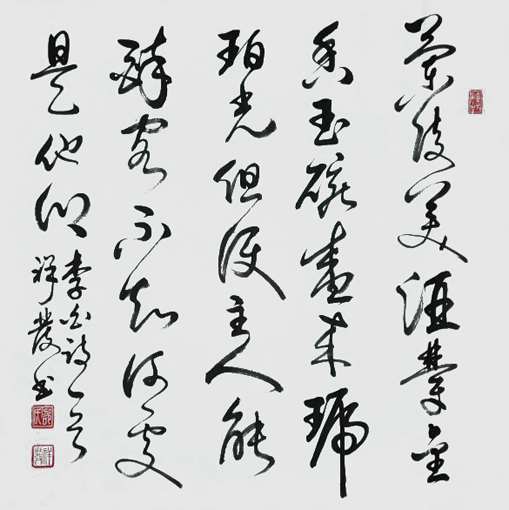 蘭陵美酒鬱金
香玉碗盛來琥
珀光但使主人能
醉客不知何處
是他鄉
李白詩一首
祥發书